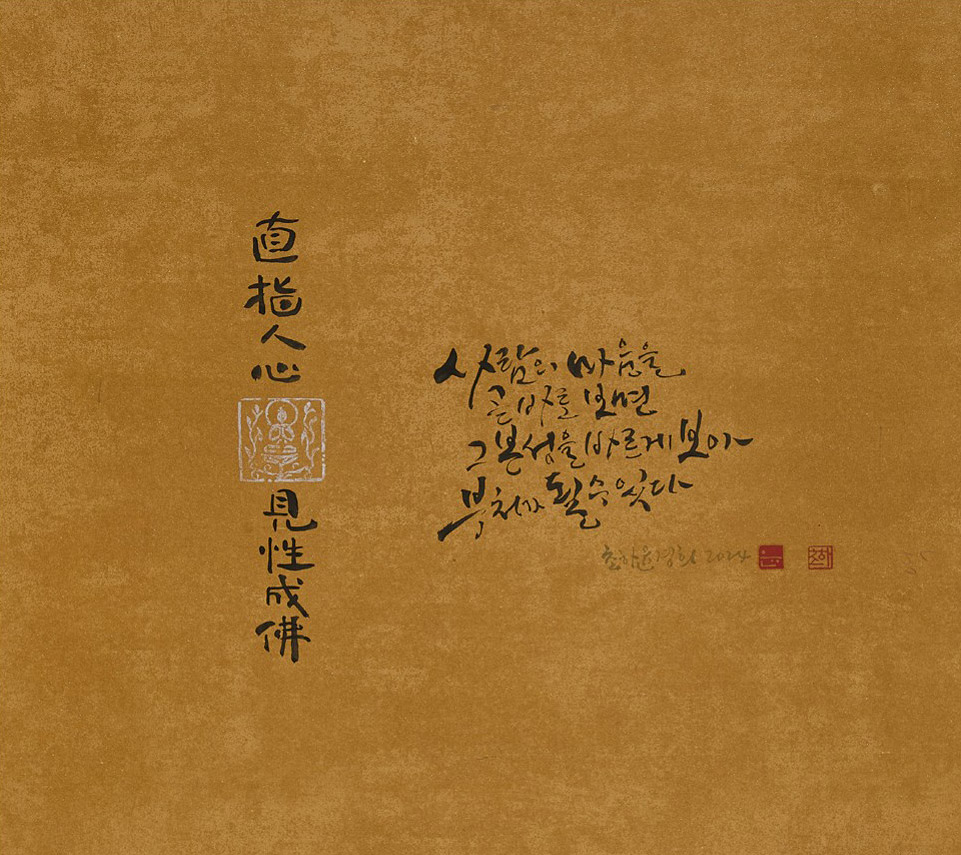 直指人心
見性成佛
사람의 마음을
곧바로 보면
그 본성을 바르게 보아
부처가 될 수 있다
윤경희 2024